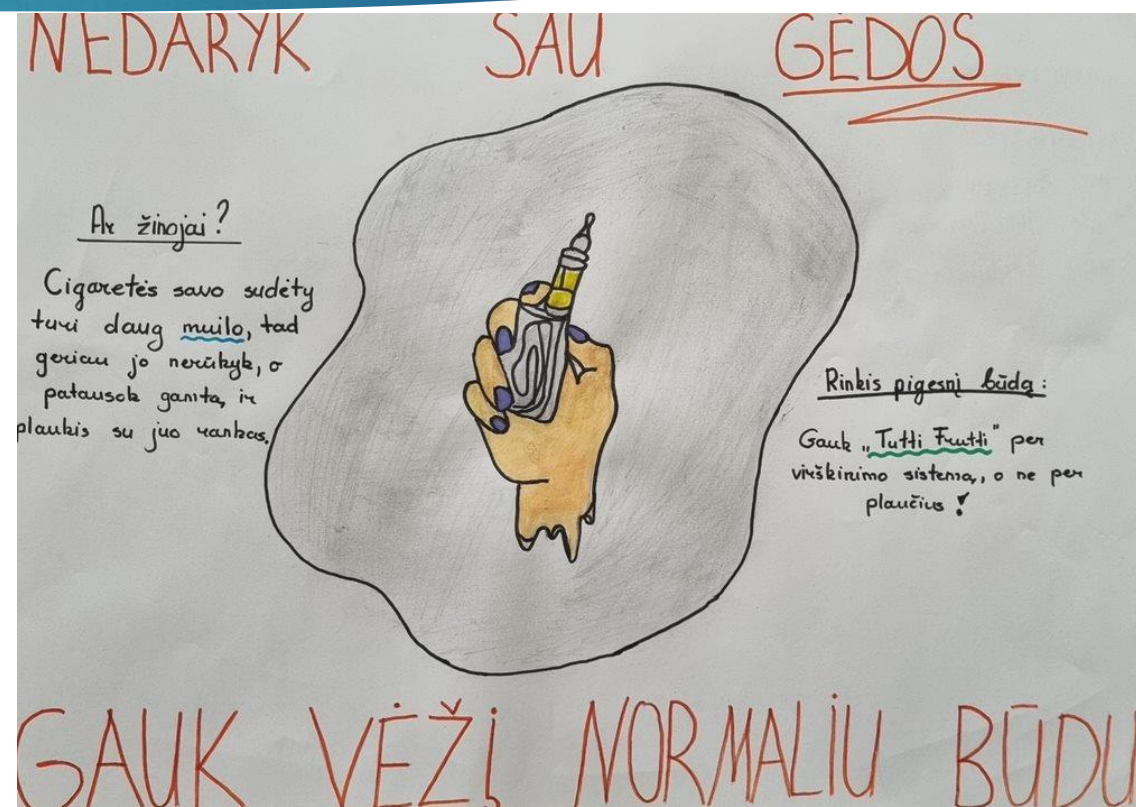 NEDARYK SAU GĖDOS
Ar žinojai?
Cigaretės savo sudėty
turi daug muilo, tad
geriau jo nerūkyk, o
patausok gamtą, ir
plaukis su juo rankas.
Rinkis pigesnį būdą:
Gauk „Tutti Frutti" per
virškinimo sistemą, o ne per
plaučius!
GAUK VĖŽĮ NORMALIU BŪDU